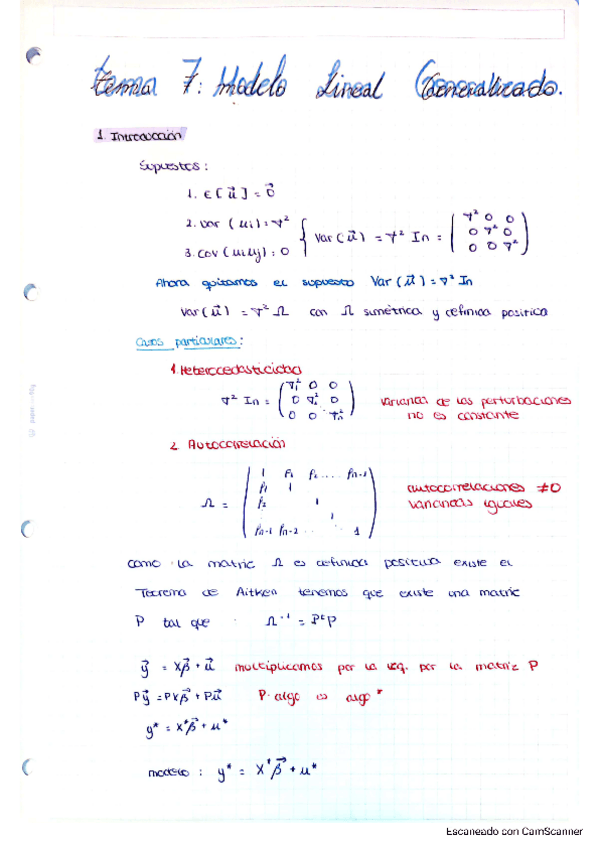 tema 7: Modelo Lineal Generalizado.
1. Introducción
Supuestos:
1. E[u⃗] = 0⃗
2. var (ui) = σ²
3. cov (ui,uj) = 0
{ Var(u⃗) = σ² In = ( σ² 0 0
0 σ² 0
0 0 σ² )
Ahora quitamos el supuesto Var(u⃗) = σ² In
Var(u⃗) = σ² Ω con Ω simétrica y definida positiva
Casos particulares:
1. Heterocedasticidad
σ² In = ( σ₁² 0 0
0 σ₂² 0
0 0 σn² )
varianzas de las perturbaciones
no es constante
2. Autocorrelación
Ω = ( 1 ρ₁ ρ₂ .... ρn-1
ρ₁ 1
ρ₂ 1
1
ρn-1 ρn-2 . . . 1 )
autocorrelaciones ≠0
varianzas iguales
como la matriz Ω es definida positiva existe el
Teorema de Aitken tenemos que existe una matriz
P tal que Ω⁻¹ = PᵗP
y⃗ = Xβ⃗ + u⃗ multiplicamos por la izq. por la matriz P
Py⃗ = PXβ⃗ + Pu⃗ P· algo es algo*
y* = X*β⃗ + u*
modelo: y* = X*β⃗ + u*
Escaneado con CamScanner